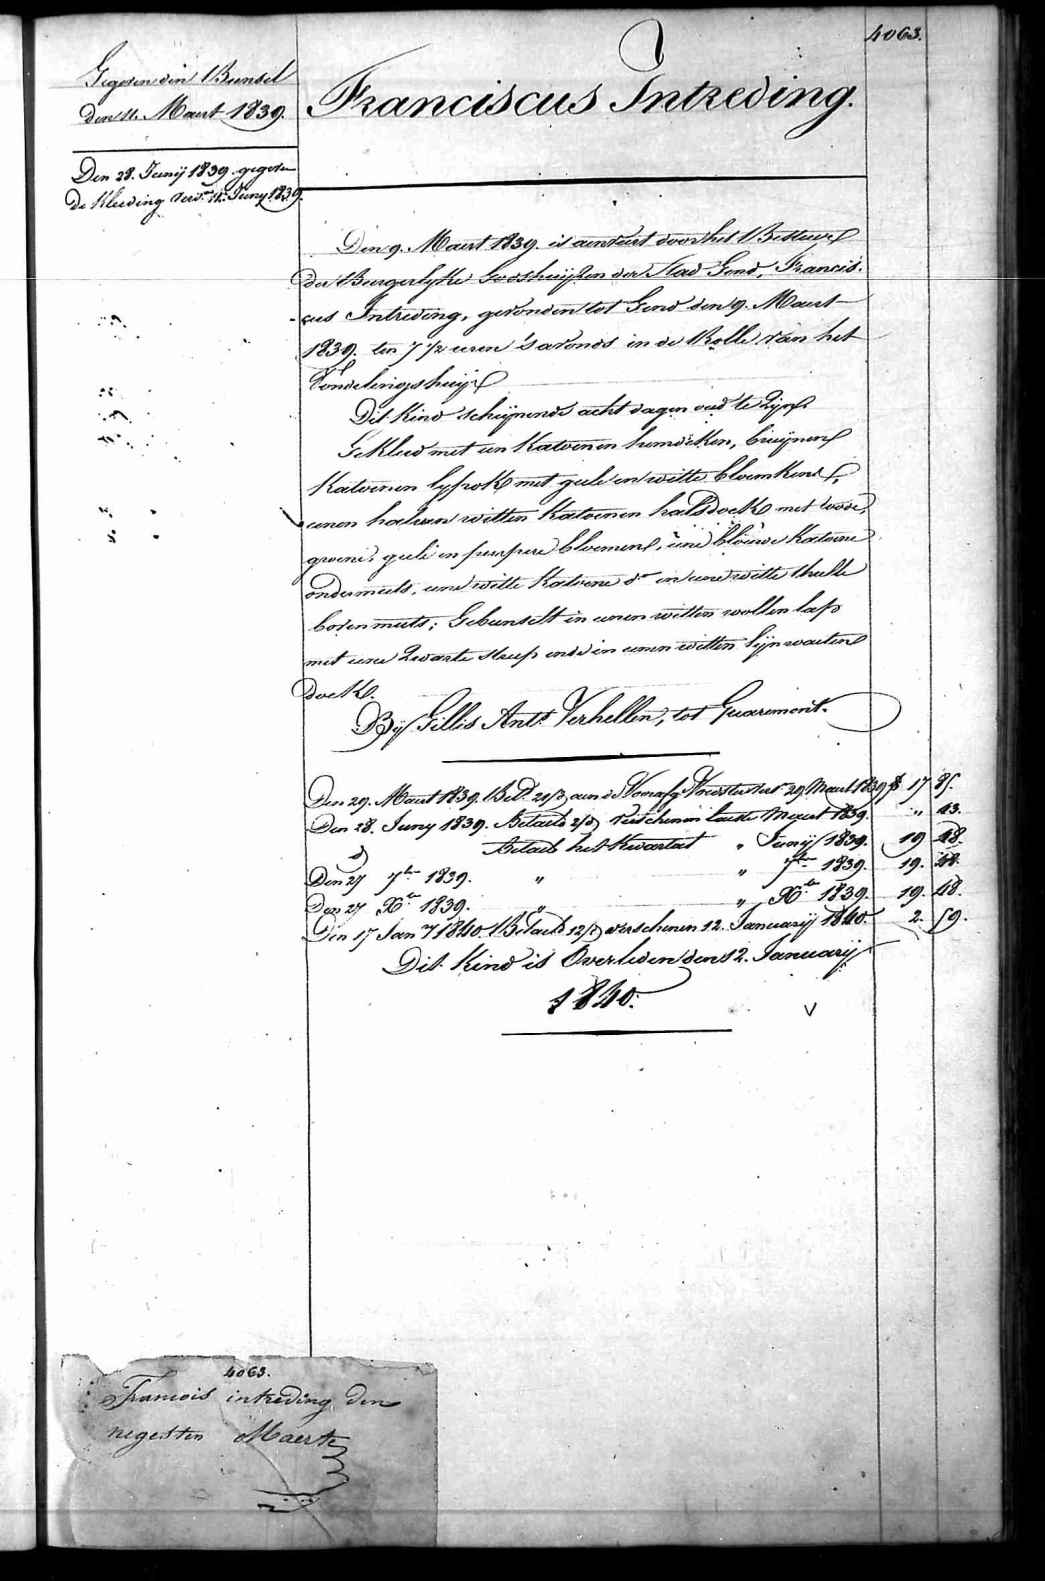 4063.
Gegeven din Bunsel
den 11. Maert 1839.
Den 28. Junij 1839. gegeven
de Kleeding verv. 11. Juny 1839.
Franciscus Intreding.
Den 9. Maert 1839. is aenveert door het Bestuur
der Burgerlyke Godshuijzen der Stad Gend, Francis-
cus Intreding, gevonden tot Gend den 9. Maert
1839. ten 7 1/2 uren 's avonds in de Rolle van het
Vondelingshuijs
Dit Kind schijnende acht dagen oud te Zijn
Gekleed met een Katoenen hemdeken, bruijnen
Katoenen lyfrok met geele en witte bloemkens,
eenen halven witten Katoenen halsdoek met roode,
groene, geele en purpere bloemen, eene blauwe Katoene
ondermuts, eene witte Katoene do en eene witte thulle
bovenmuts; Gebunselt in eenen witten wollen lap
met eene Zwarte streep ende in eenen witten lijnwaeten
doek.
Bij Gillis Ant. Verhellen, tot Quaremont.
Den 29. Maert 1839. Bet. 21/d aen de Voorafg Voedster vers. 29 Maert 1839 f 17 85.
Den 28. Juny 1839. Betaeld 2/d verschenen laeste Maert 1839. " 43.
d Betaeld het Kwartael " Junij 1839. 19 48.
Den 27 7ber 1839. " " 7ber 1839. 19. 48.
Den 27 Xber 1839. " " Xber 1839. 19. 48.
Den 17 Jan.ry 1840. Betaeld 12/d verschenen 12. Januarij 1840. 2. 59.
Dit Kind is Overleden den 12. Januarij
1840.
V
4063.
Francois intreding den
negesten Maerte